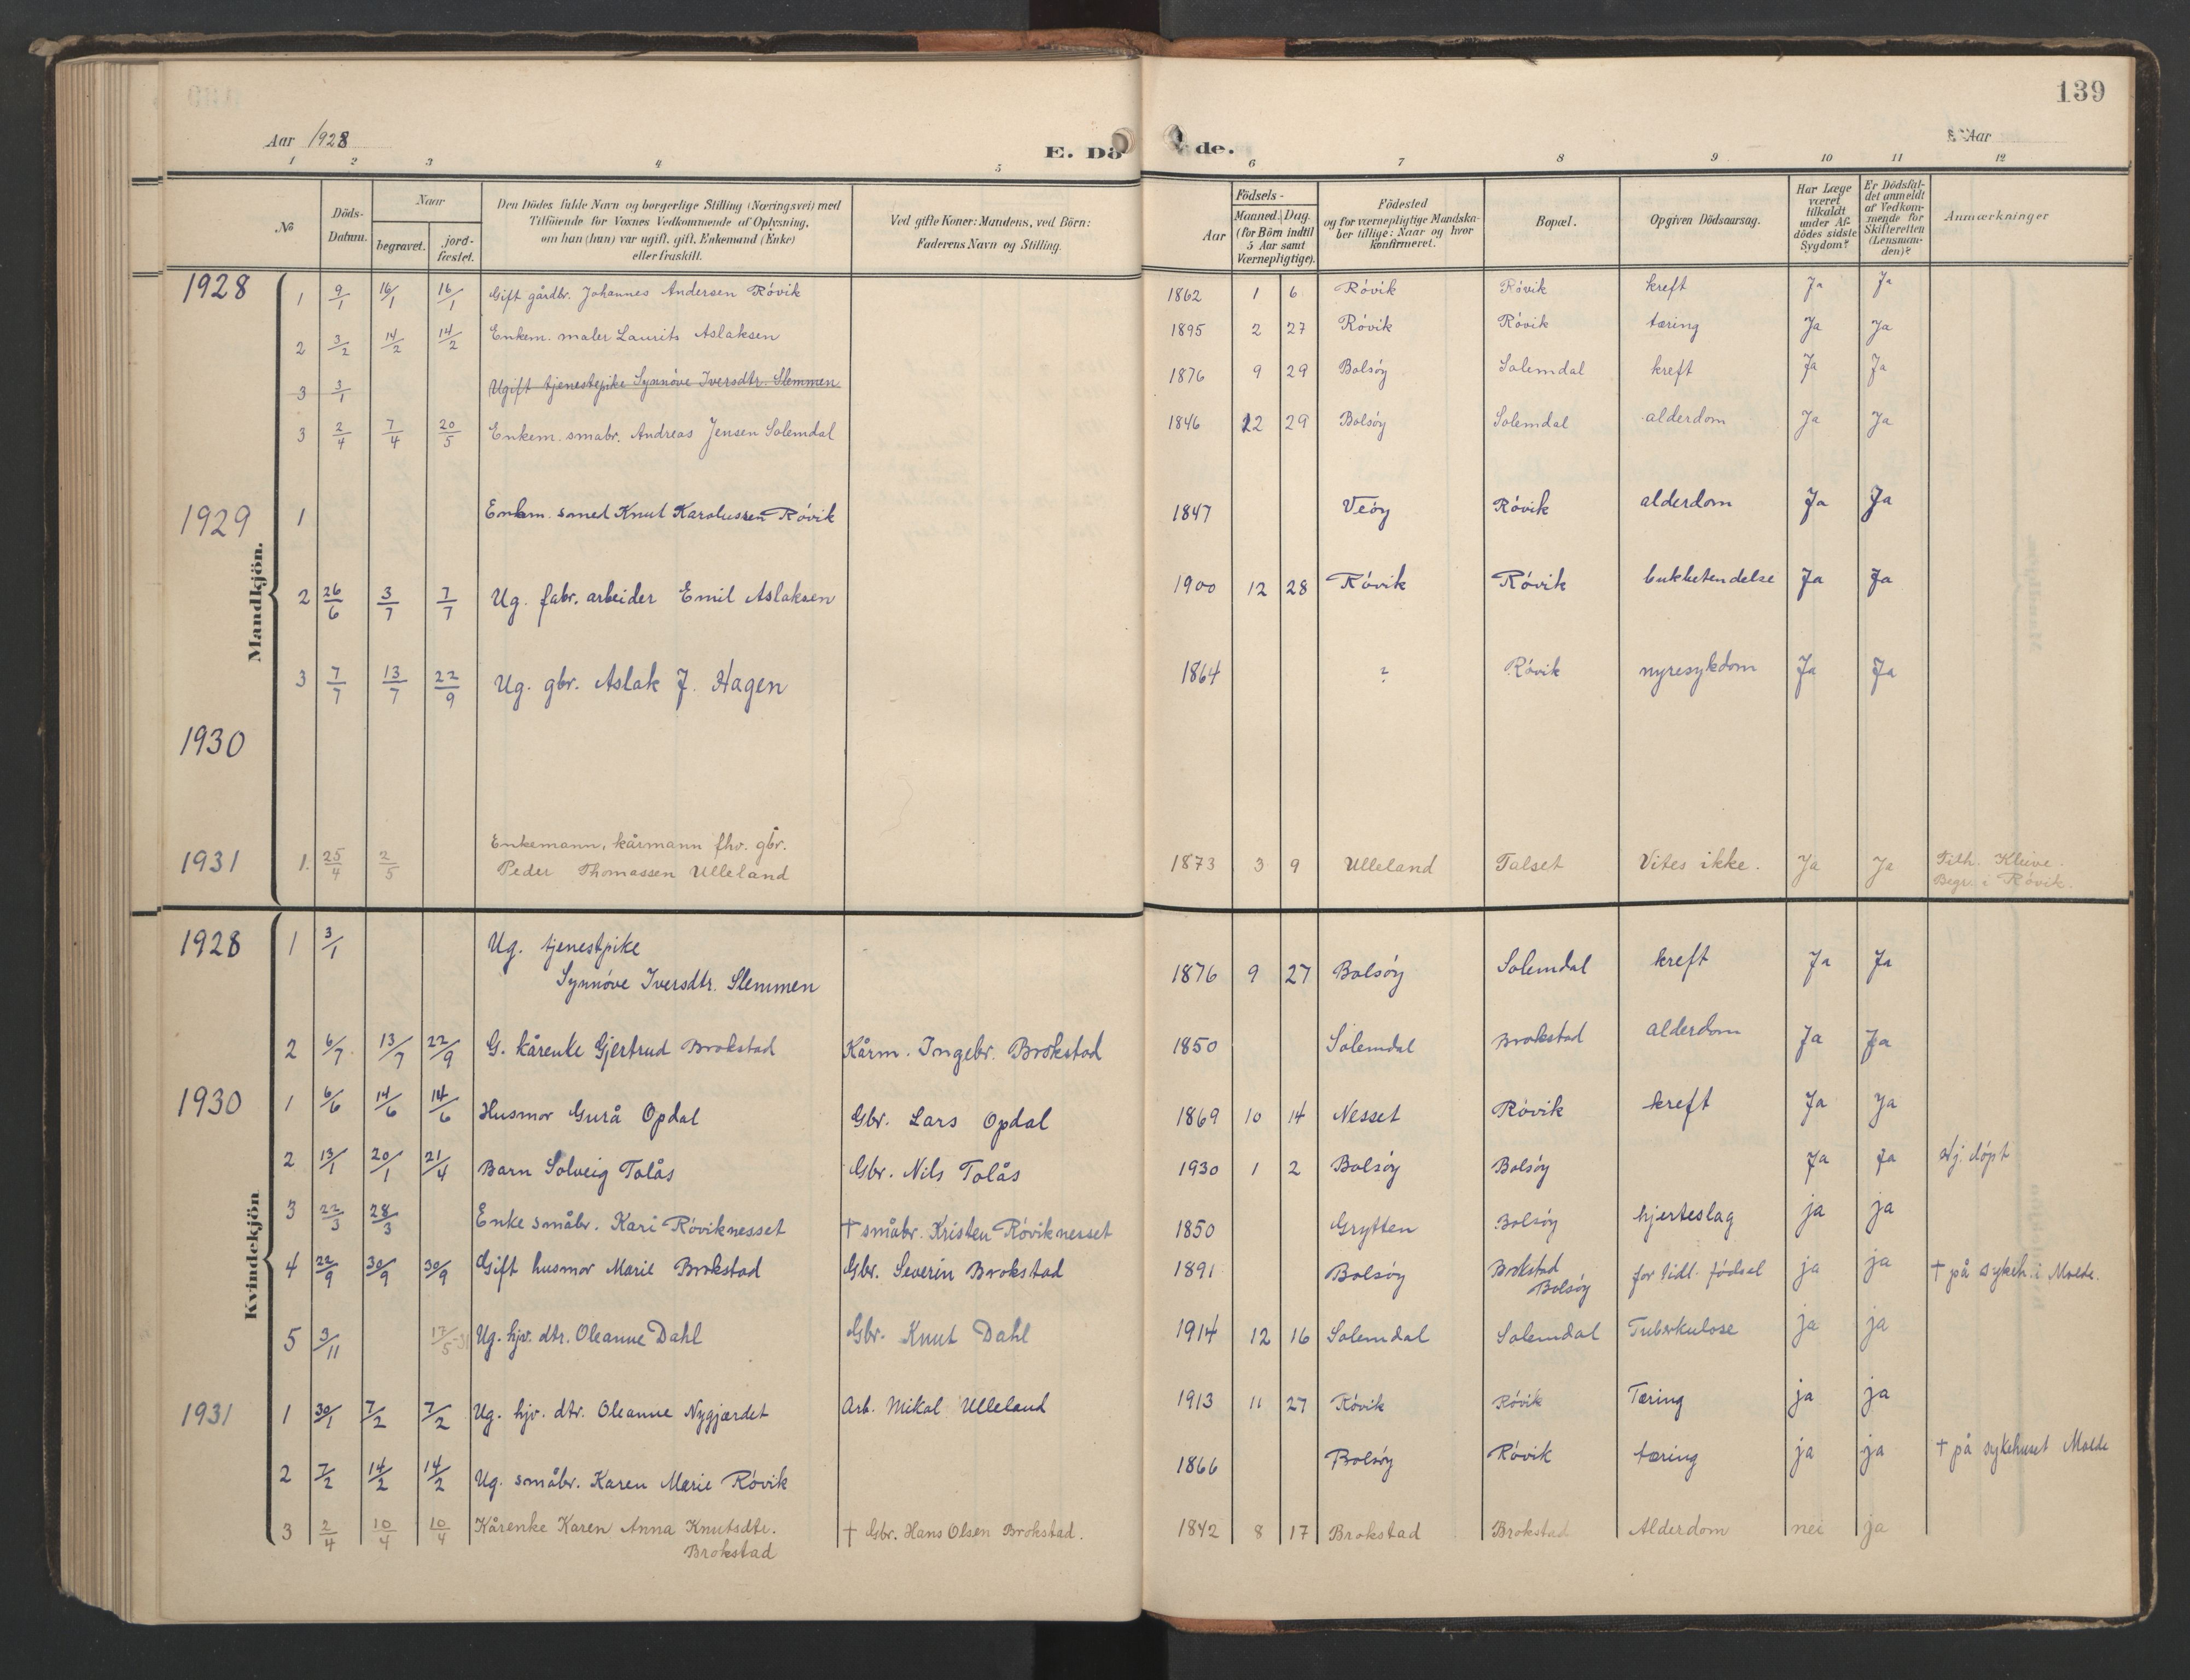 139
Aar 1928
E. Dö de.
Aar
1 2 3 4 5 6 7 8 9 10 11 12
No
Döds-Datum.
Naar
begravet.
jord-fæstet.
Den Dödes fulde Navn og borgerlige Stilling (Næringsvei) med
Tilföiende for Voxnes Vedkommende af Oplysning,
om han (hun) var ugift, gift, Enkemand (Enke)
eller fraskilt.
Ved gifte Koner: Mandens, ved Börn:
Faderens Navn og Stilling.
Födsels-
Aar
Maaned. Dag.
(for Börn indtil
5 Aar samt
Værnepligtige).
Födested
og for værnepligtige Mandska-
ber tillige: Naar og hvor
konfirmeret.
Bopæl.
Opgiven Dödsaarsag.
Har Læge
været
tilkaldt
under Af-
dödes sidste
Sygdom?
Er Dödsfal-
det anmeldt
af Vedkom-
mende for
Skifteretten
(Lensman-
den)?
Anmærkninger
Mandkjön.
1928 1 9/1 16/1 16/1 Gift gårdbr. Johannes Andersen Róvik 1862 1 6 Róvik Róvik kreft Ja Ja
2 3/2 14/2 14/2 Enkem. maler Laurits Aslaksen 1895 2 27 Róvik Róvik tæring Ja Ja
3 3/1 Ugift tjenestepike Synnóve Iversdtr. Slemmen 1876 9 29 Bolsóy Solemdal kreft Ja Ja
3 2/4 7/4 20/5 Enkem. smabr. Andreas Jensen Solemdal 1846 12 29 Bolsóy Solemdal alderdom Ja Ja
1929 1 Enkm. smed Knut Karolussen Róvik 1847 Veóy Róvik alderdom Ja Ja
2 26/6 3/7 7/7 Ug. fabr. arbeider Emil Aslaksen 1900 12 28 Róvik Róvik bukbetendelse Ja Ja
3 7/7 13/7 22/9 Ug. gbr. Aslak J. Hagen 1864 ? Róvik nyresykdom Ja Ja
1930
Enkemann, kårmann fhv. gbr.
1931 1. 25/4 2/5 Peder Thomassen Ulleland 1873 3 9 Ulleland Talset Vites ikke. Ja Ja Tilh. Kleive.
Begr. i Róvik.
Kvindekjön
1928 1 3/1 Ug. tjenestpike
Synnóve Iversdtr. Slemmen 1876 9 27 Bolsóy Solemdal kreft Ja Ja
2 6/7. 13/7 22/9 G. kårenke Gjertrud Brokstad Kårm. Ingebr. Brokstad 1850 Solemdal Brokstad alderdom Ja Ja
1930 1 6/6 14/6 14/6 Husmor Gurå Opdal Gbr. Lars Opdal 1869 10 14 Nesset Róvik kreft Ja Ja
2 13/1 20/1 21/4 Barn Solveig Tolås Gbr. Nils Tolås 1930 1 2 Bolsóy Bolsóy Ja Ja dópt
3 22/3 28/3 Enke småbr. Kari Róviknesset † småbr. Kristen Róviknesset 1850 Grytten Bolsóy hjerteslag ja ja
4 22/9 30/9 30/9 Gift husmor Marie Brokstad Gbr. Severin Brokstad 1891 Bolsóy Brokstad
Bolsóy for tidl. fódsel ja ja † på sykeh. i Molde.
5 3/11 17/5-31 Ug. hjv. dtr. Oleanne Dahl Gbr. Knut Dahl 1914 12 16 Solemdal Solemdal Tuberkulose ja ja
1931 1 30/1 7/2 7/2 Ug. hjv. dtr. Oleanne Nygjærdet Arb. Mikal Ulleland 1913 11 27 Róvik Róvik Tæring ja ja
2 7/2 14/2 14/2 Ug. småbr. Karen Marie Róvik 1866 Bolsóy Róvik tæring ja ja † på sykehuset Molde
3 2/4 10/4 10/4 Kårenke Karen Anna Knutsdtr.
Brokstad † Gbr. Hans Olsen Brokstad. 1842 8 17 Brokstad Brokstad Alderdom nei ja